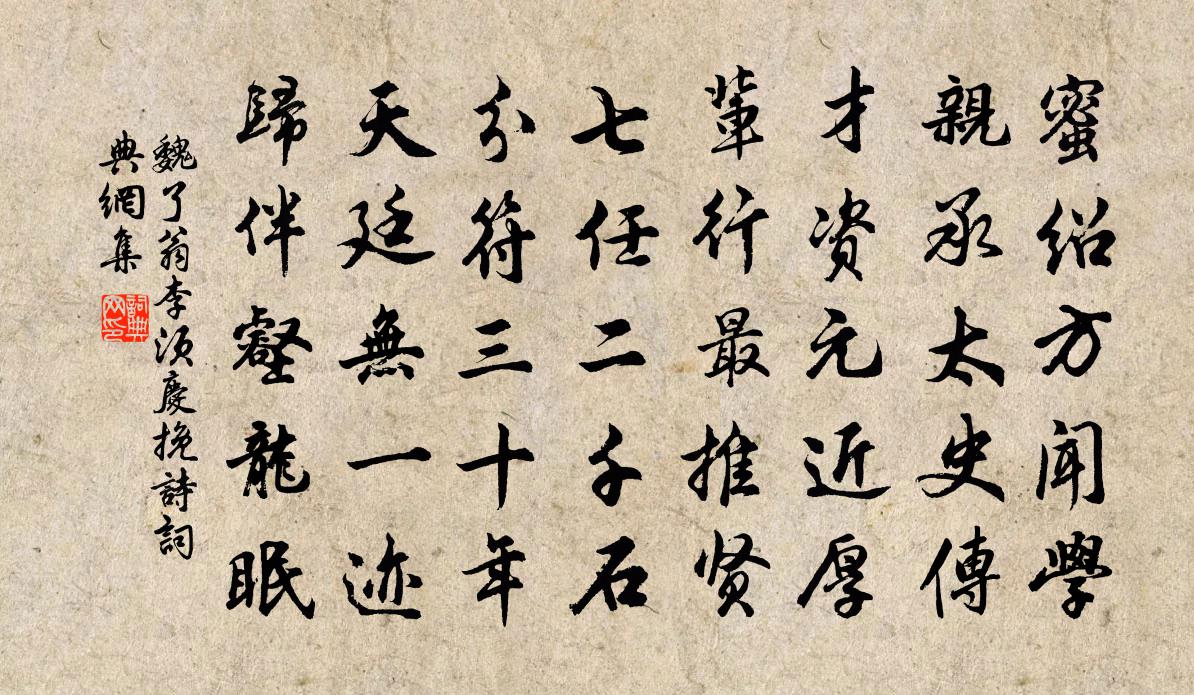 蜜绍方闻學
親承太史傳
才资元近厚
輩行最推贤
七任二千石
分符三十年
天廷無一迹
歸伴壑龍眠
魏了翁李须慶挽詩詞
典網集
詞典
网印